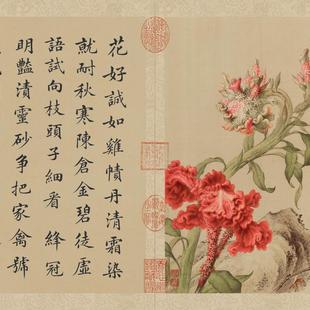 花好誠如雞幘丹清霜染
就耐秋寒陳倉金碧徒虛
語試向枝頭子細看　絳冠
明豔漬靈砂爭把家禽號